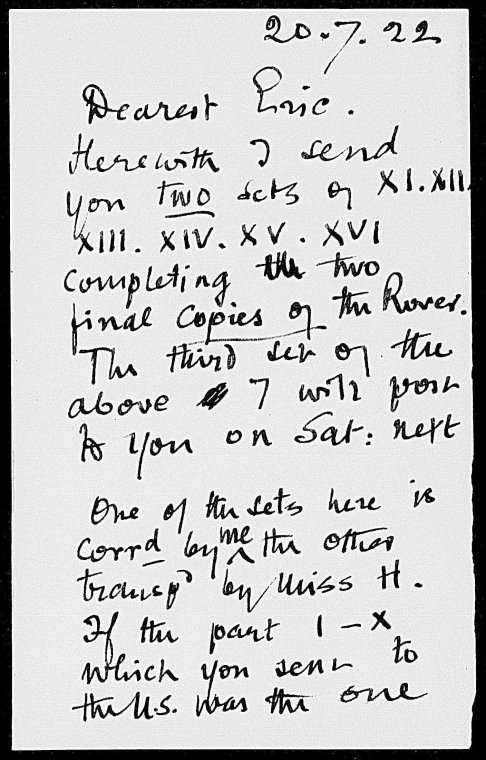 20.7.22
Dearest Eric.
Herewith I send
you two sets of XI. XII.
XIII. XIV. XV. XVI
completing the two
final copies of the Rover.
The third set of the
above I will post
to you on Sat: next
One of the sets here is
corrd by me the other
transpd by Miss H.
If the part I – X
which you sent to
the U.S. was the one